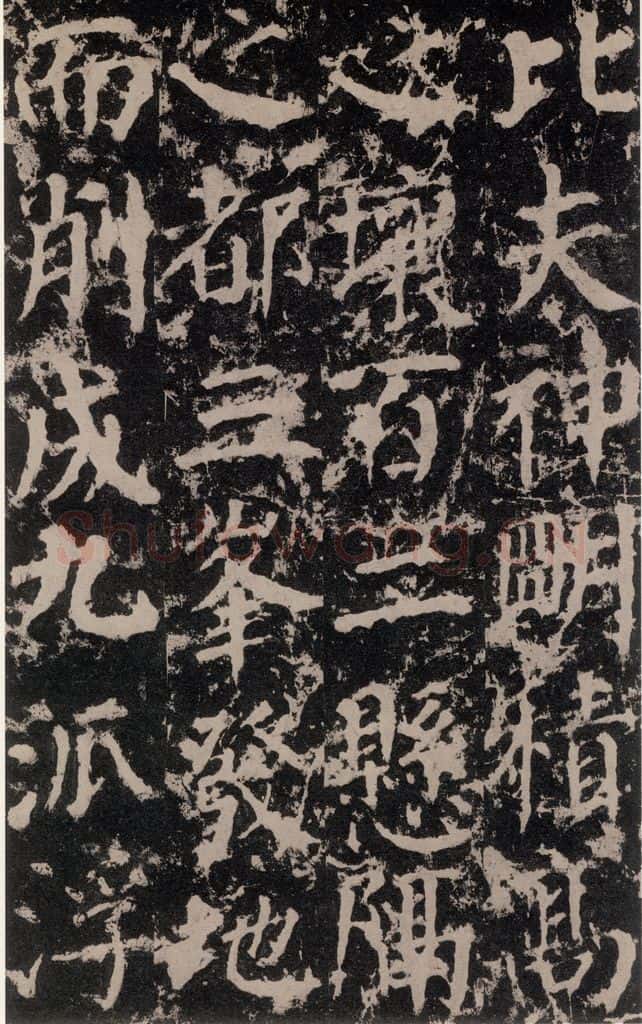 比夫神明積高
之壤百二懸隔
之都三峯發地
而削成九派浮
Shufawang.CN